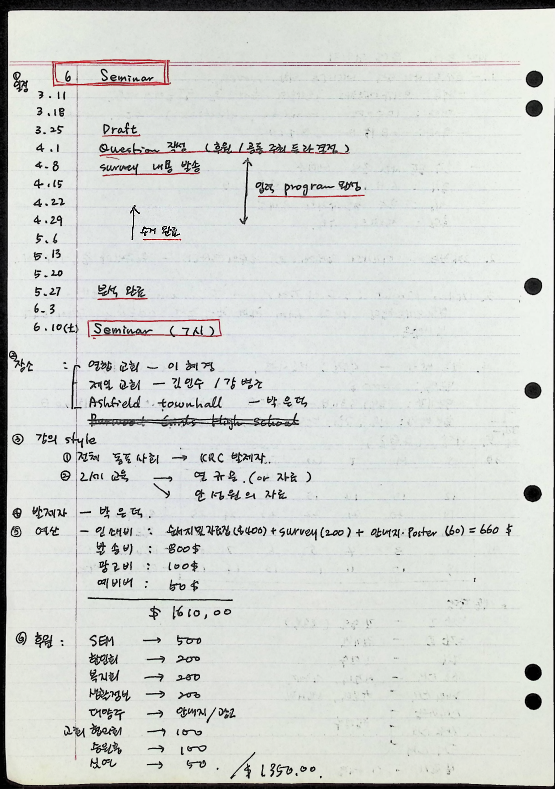 6 Seminar
① 일정
3.11
3.18
3.25 Draft
4.1 Question 작성 (후원 / 공동 주최 트라 결정)
4.8 survey 내용 발송
4.15 입력 program 완성.
4.22
4.29
5.6 수거 완료
5.13
5.20
5.27 분석 완료
6.3
6.10(土) Seminar (7시)
② 장소 : 연합 교회 - 이혜경
제일 교회 - 김인수 / 강병조
Ashfield townhall - 박은덕
High school
③ 강의 style
① 전체 동포사회 → KRC 발제자.
② 2세 교육 → (or 자료)
의 자료
④ 발제자 - 박은덕.
⑤ 예산 - 인쇄비 : ($400) + survey (200) + 안내지·Poster (60) = 660 $
발송비 : 800$
광고비 : 100$
예비비 : 50$
$ 1610,00
⑥ 후원 : → 500
한인회 → 200
복지회 → 200
→ 200
대양주 → 안내지/광고
교회 협의회 → 100
→ 100
→ 50.
/$1350.00.